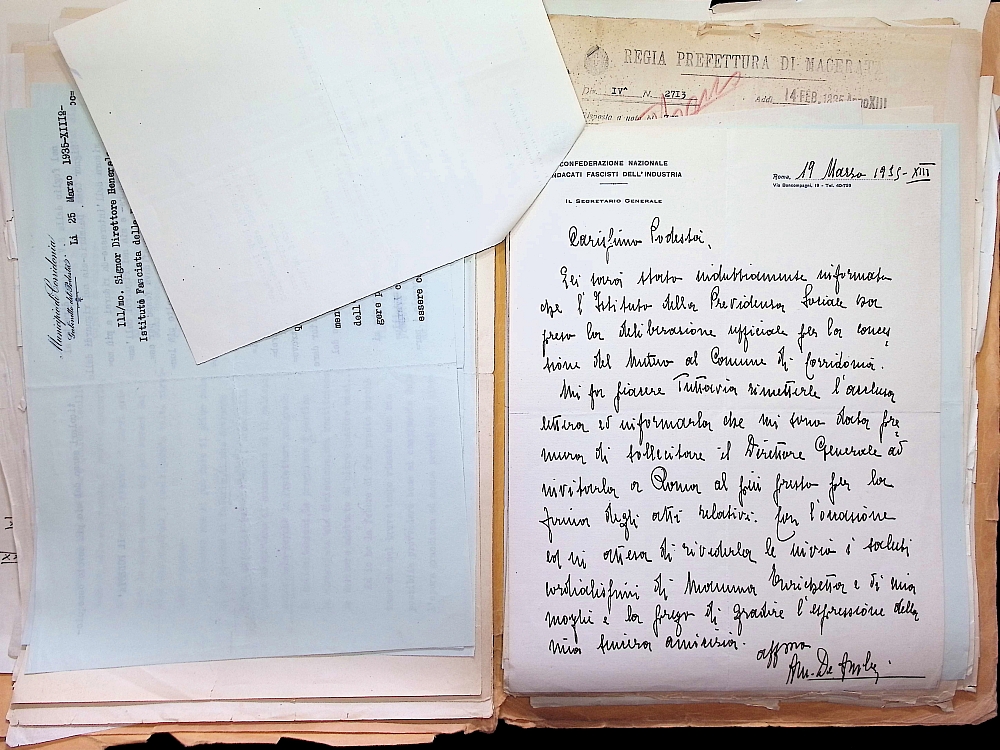 REGIA PREFETTURA DI MACERATA
Div. IVª N. 2713
Addì, 14 FEB. 1935 Anno XIII
Risposta a nota
CONFEDERAZIONE NAZIONALE
SINDACATI FASCISTI DELL'INDUSTRIA
IL SEGRETARIO GENERALE
Roma, 19 Marzo 1935-XIII
Via Boncompagni, 19 - Tel.
Carissimo Podestà,
Lei sarà stato indubbiamente informato
che l'Istituto della Previdenza Sociale ha
preso la deliberazione ufficiale per la conces
sione del Mutuo al Comune di Corridonia.
Mi fo piacere tuttavia rimetterle l'acclusa
lettera ed informarla che mi sono data pre
mura di sollecitare il Direttore Generale ad
invitarla a Roma al più presto per la
firma degli atti relativi. Con l'occasione
ed in attesa di rivederla le invio i saluti
cordialissimi di Mamma Enrichetta e di mia
moglie e la prego di gradire l'espressione della
mia sincera amicizia.
affmo
Municipio di Corridonia
Gabinetto del Podestà
Li 25 Marzo 1935-XIIIº-
Ill/mo. Signor Direttore Generale
Istituto Fascista della
men
dell
gere
essere